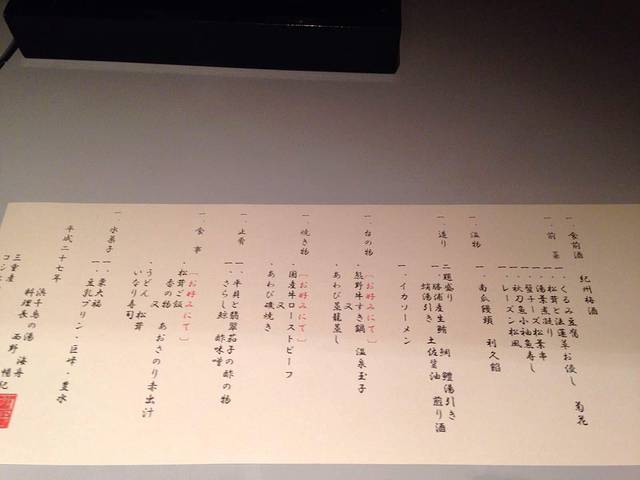 一、食前酒 紀州梅酒
一、前菜
・くるみ豆腐 菊花
・松茸と法蓮草お浸し
・湯葉煮凝り 松葉串
・蟹チーズ松葉串
・秋刀魚小袖寿し
・レーズン松風
一、温物
・南瓜饅頭 利久餡
一、造り
二種盛り 鯛 鱧湯引き
・勝浦産生鮪
・蛸湯引き 土佐醤油 煎り酒
・イカソーメン
一、台の物
[お好みにて]
・熊野牛すき鍋 温泉玉子
又
・あわび蒸籠蒸し
一、焼き物
[お好みにて]
・国産牛ローストビーフ
又
・あわび磯焼き
一、止肴
・平貝と翡翠茄子の酢の物
・さらし鯨 酢味噌
一、食事
[お好みにて]
・松茸ご飯
・香の物 あおさのり赤出汁
又
・うどん 松茸
・いなり寿司
一、水菓子
・栗大福
・豆乳プリン・巨峰・豊水
平成二十七年
浜千鳥の湯 海舟
料理長 西野
三重産